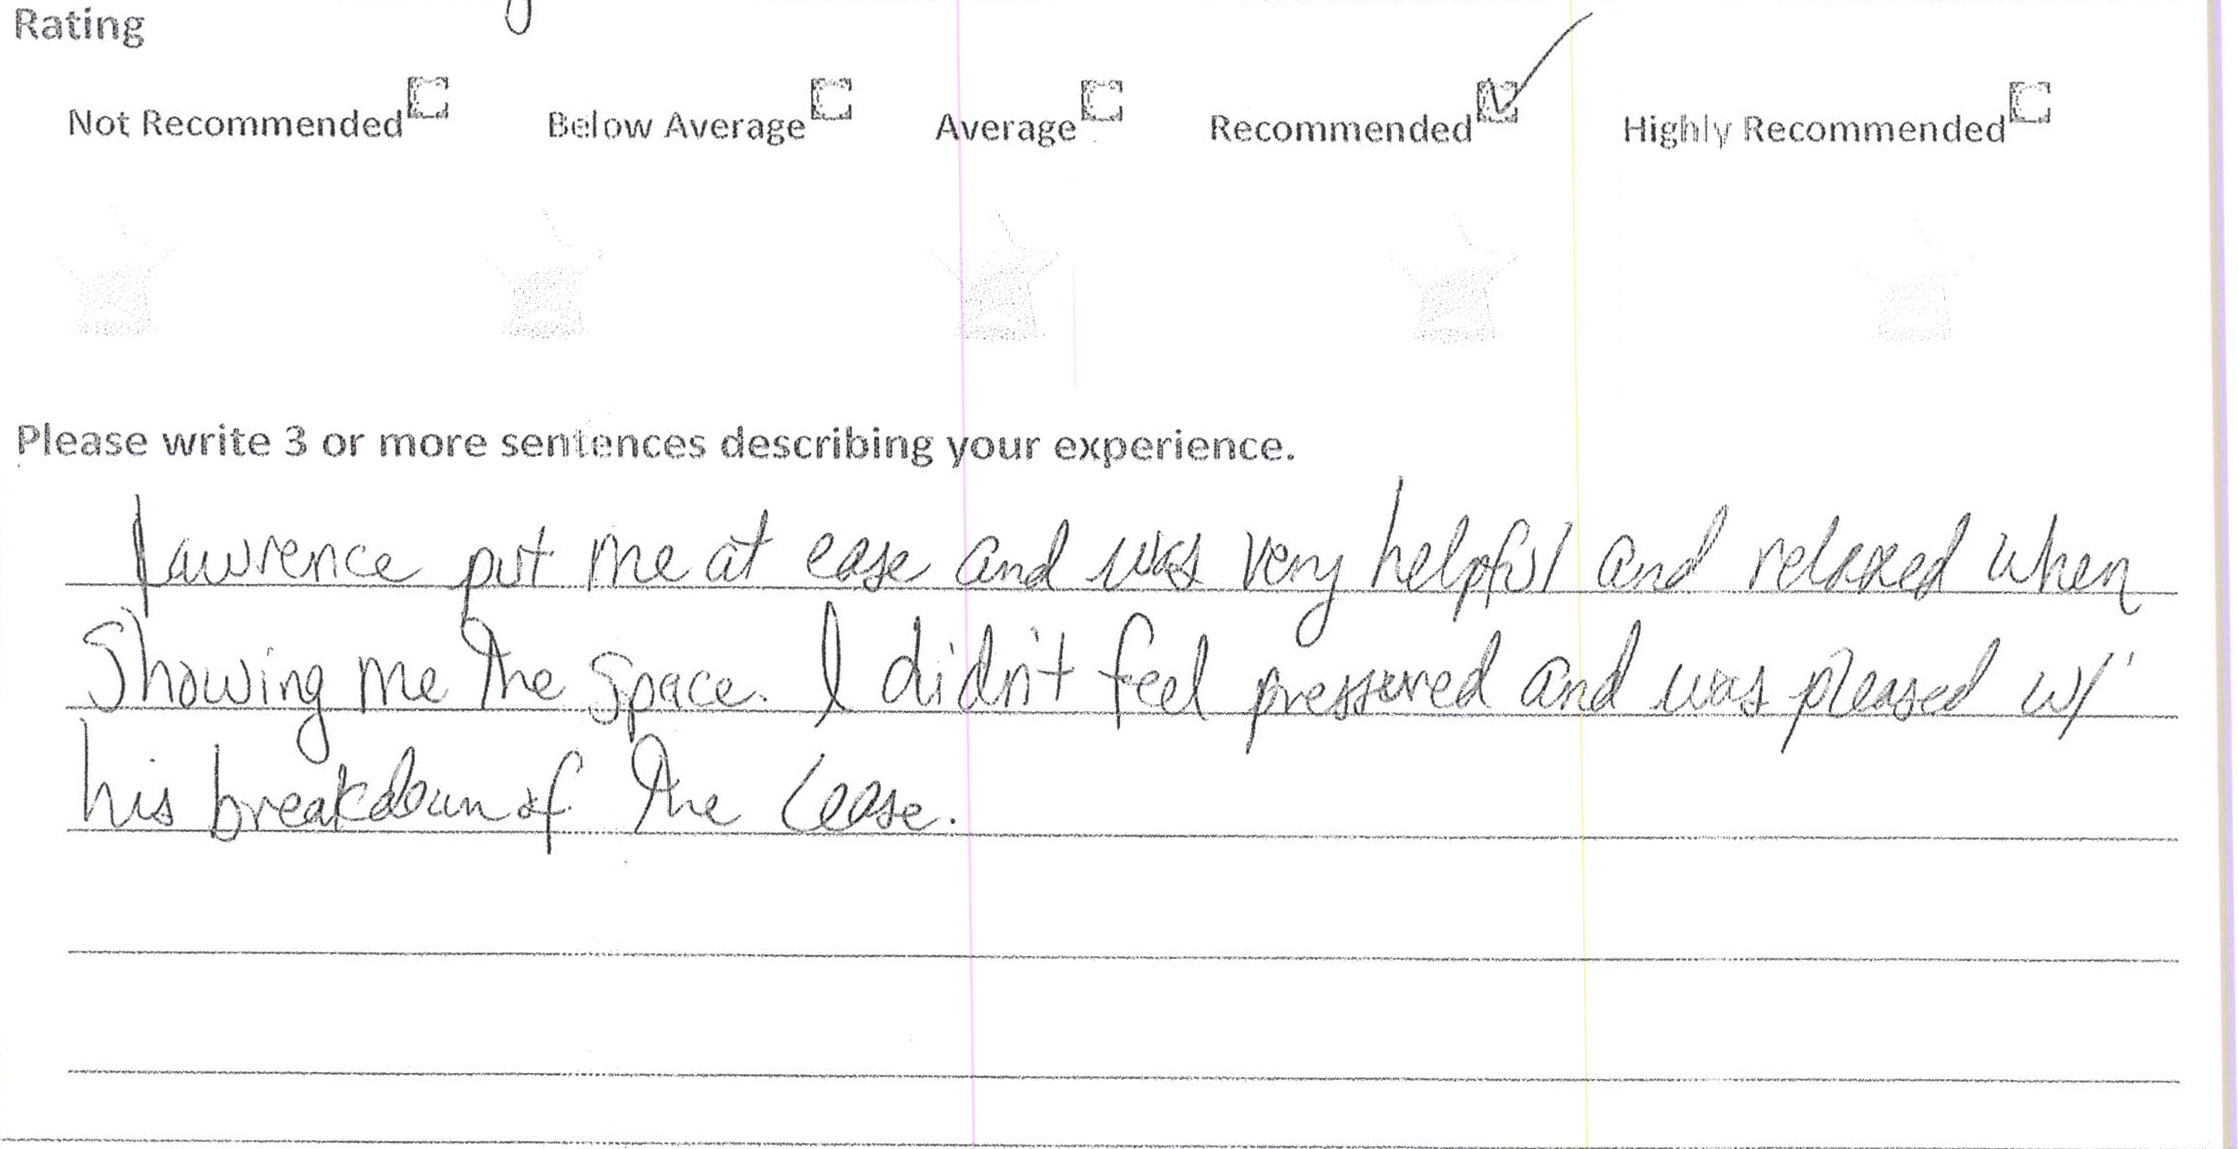 Rating
Not Recommended Below Average Average Recommended Highly Recommended
Please write 3 or more sentences describing your experience.
Lawrence put me at ease and was very helpful and relaxed when
showing me the space. I didn't feel pressured and was pleased w/
his breakdown of the lease.